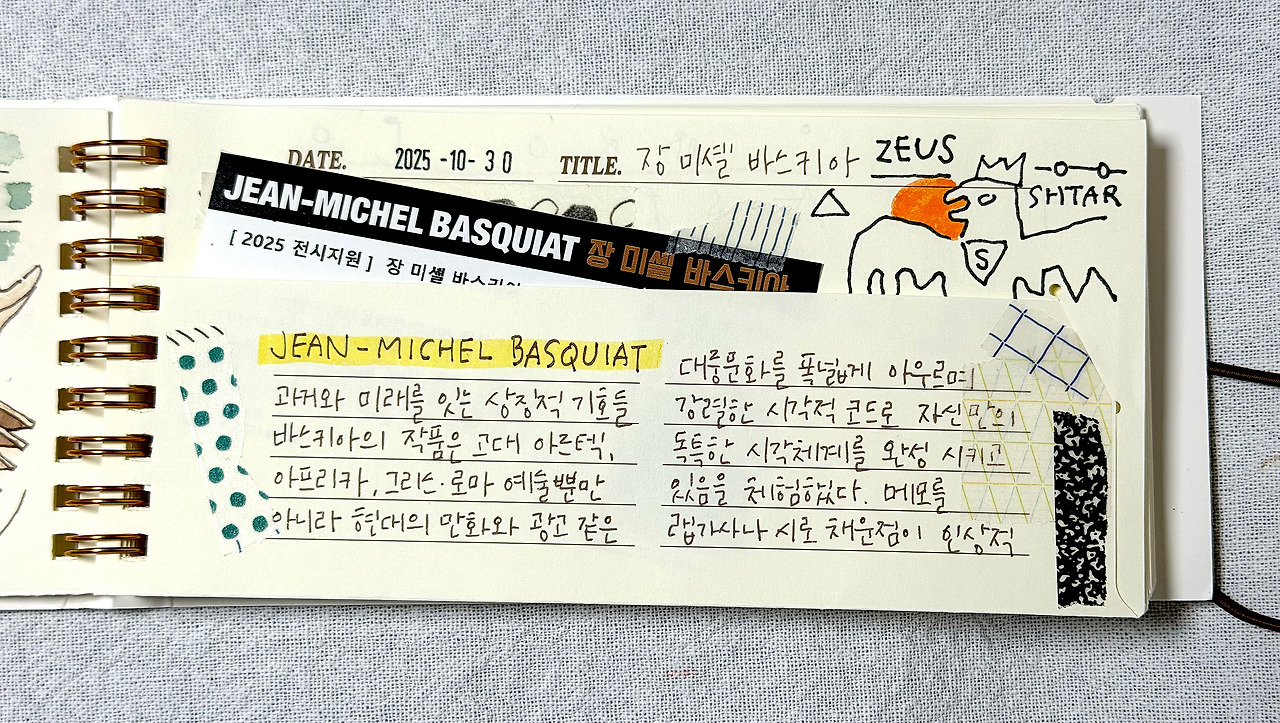 DATE. 2025-10-30 TITLE. 장 미셸 바스키아
ZEUS
SHTAR
S
JEAN-MICHEL BASQUIAT 장 미셸 바스키아
[ 2025 전시지원 ] 장 미셸 바스키아
JEAN-MICHEL BASQUIAT
과거와 미래를 잇는 상징적 기호들
바스키아의 작품은 고대 아즈텍,
아프리카, 그리스·로마 예술뿐만
아니라 현대의 만화와 광고 같은
대중문화를 폭넓게 아우르며
강렬한 시각적 코드로 자신만의
독특한 시각체계를 완성 시키고
있음을 체험했다. 메모를
랩가사나 시로 채운점이 인상적